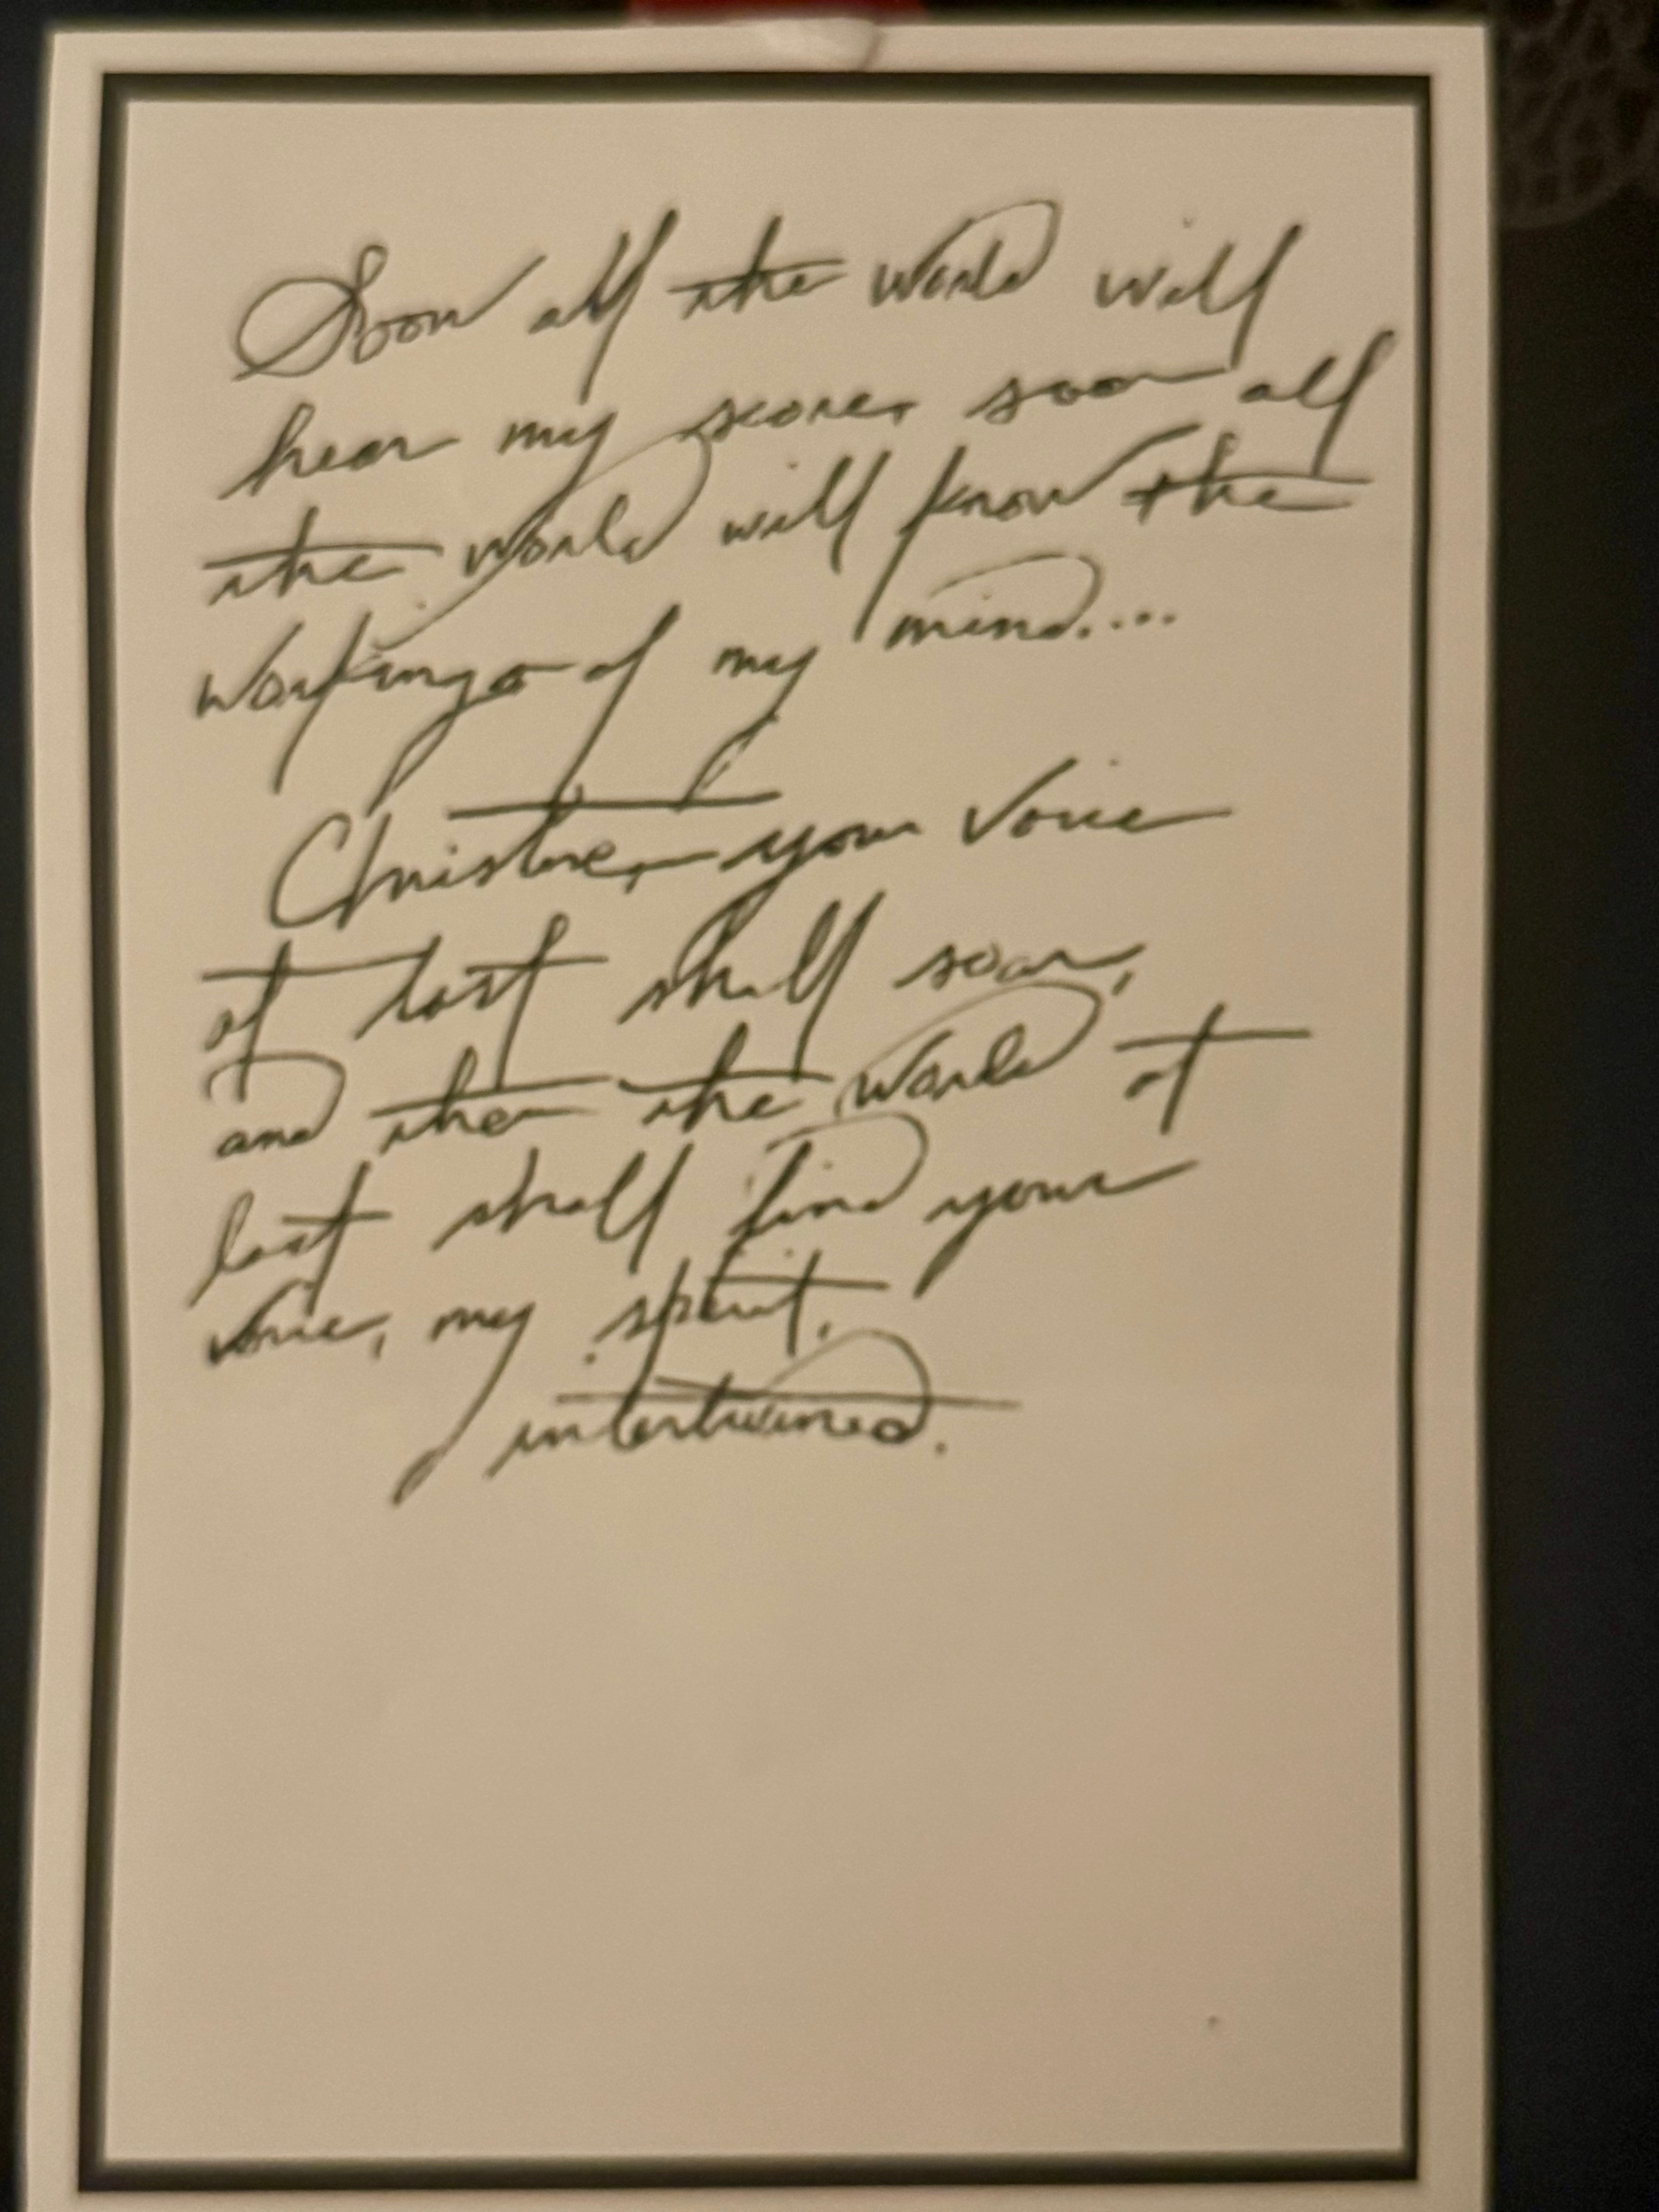 Soon all the world will
hear my score, soon all
the world will know the
workings of my mind....
Christine, your voice
at last shall soar,
and then the world at
last shall find your
voice, my spirit,
intertwined.